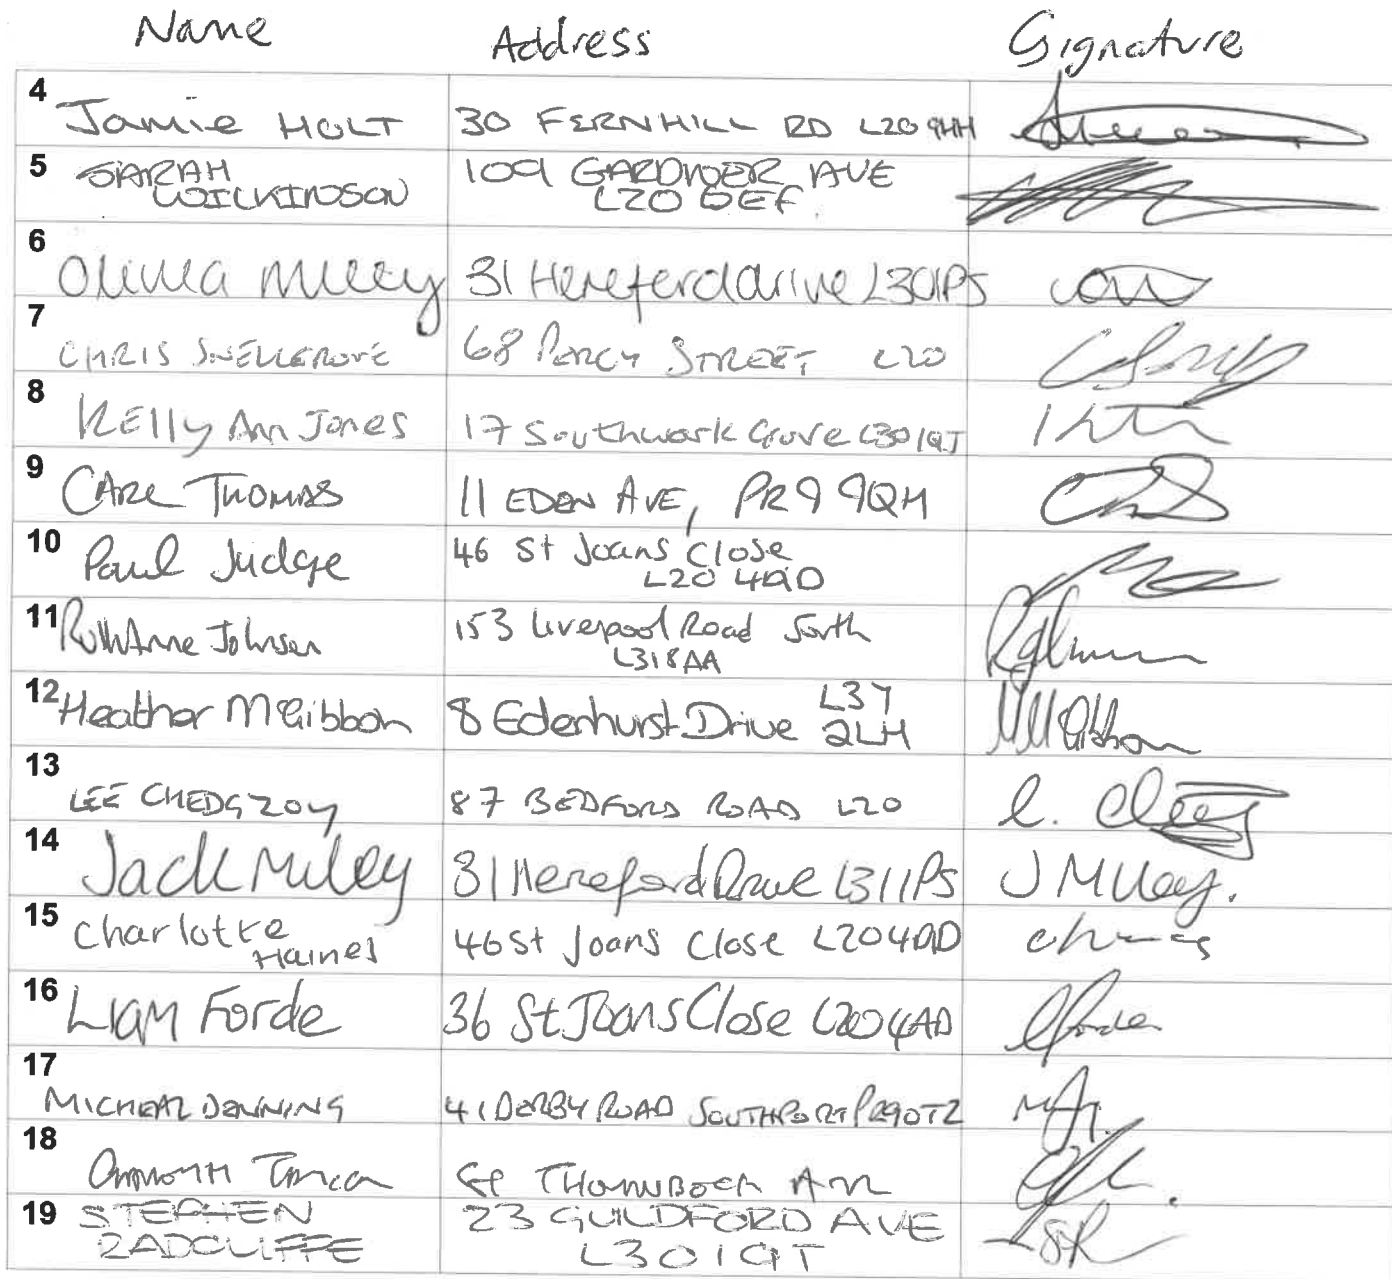 Name Address Signature
4 Jamie HOLT 30 FERNHILL RD L20 9HH
5 SARAH 109 GARDNER AVE
WILKINSON L20 6EF
6 Olivia Miley 31 Hereford drive L30 1PS
7 CHRIS SNELLGROVE 68 PERCY STREET L20
8 Kelly Ann Jones 17 Southwark Grove L30 1QJ
9 CARL THOMAS 11 EDEN AVE, PR9 9QH
10 Paul Judge 46 St Joans Close
L20 4AD
11 RuthAnne Johnson 153 Liverpool Road South
L31 8AA
12 Heather McGibbon 8 Edenhurst Drive L37
2LH
13 LEE CHEDGZOY 87 BEDFORD ROAD L20 L.
14 Jack Miley 31 Hereford Drive L31 1PS J Miley.
15 Charlotte
Haines 46 St Joans Close L20 4AD
16 Liam Forde 36 St Joans Close L20 4AD
17 MICHEAL DENNING 41 DERBY ROAD SOUTHPORT PR9 0TZ
18
19 STEPHEN 23 GUILDFORD AVE
RADCLIFFE L30 1QT SR